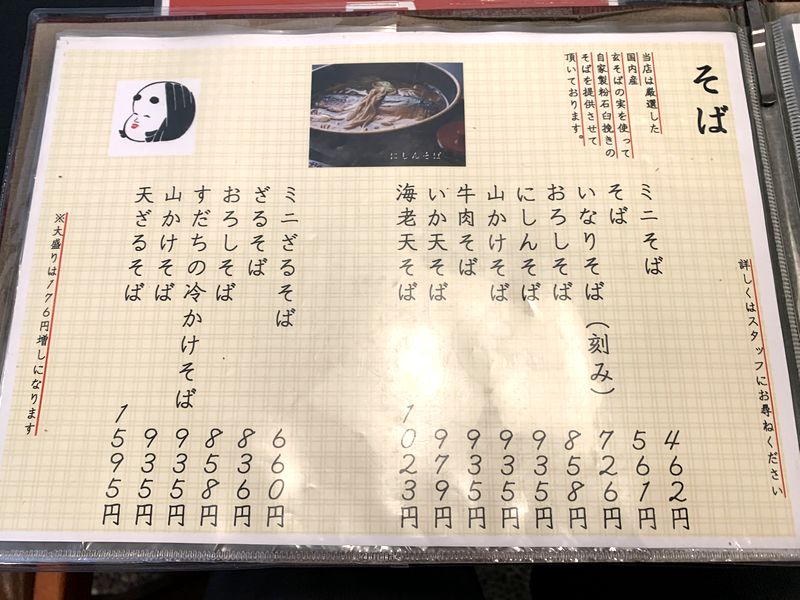 そば
当店は厳選した
国内産
玄そばの実を使って
自家製粉石臼挽きの
そばを提供させて
頂いております。
にしんそば
詳しくはスタッフにお尋ねください
ミニそば 462円
そば 561円
いなりそば(刻み) 726円
おろしそば 858円
にしんそば 935円
山かけそば 935円
牛肉そば 935円
いか天そば 979円
海老天そば 1023円
ミニざるそば 660円
ざるそば 836円
おろしそば 858円
すだちの冷かけそば 935円
山かけそば 935円
天ざるそば 1595円
※大盛りは176円増しになります